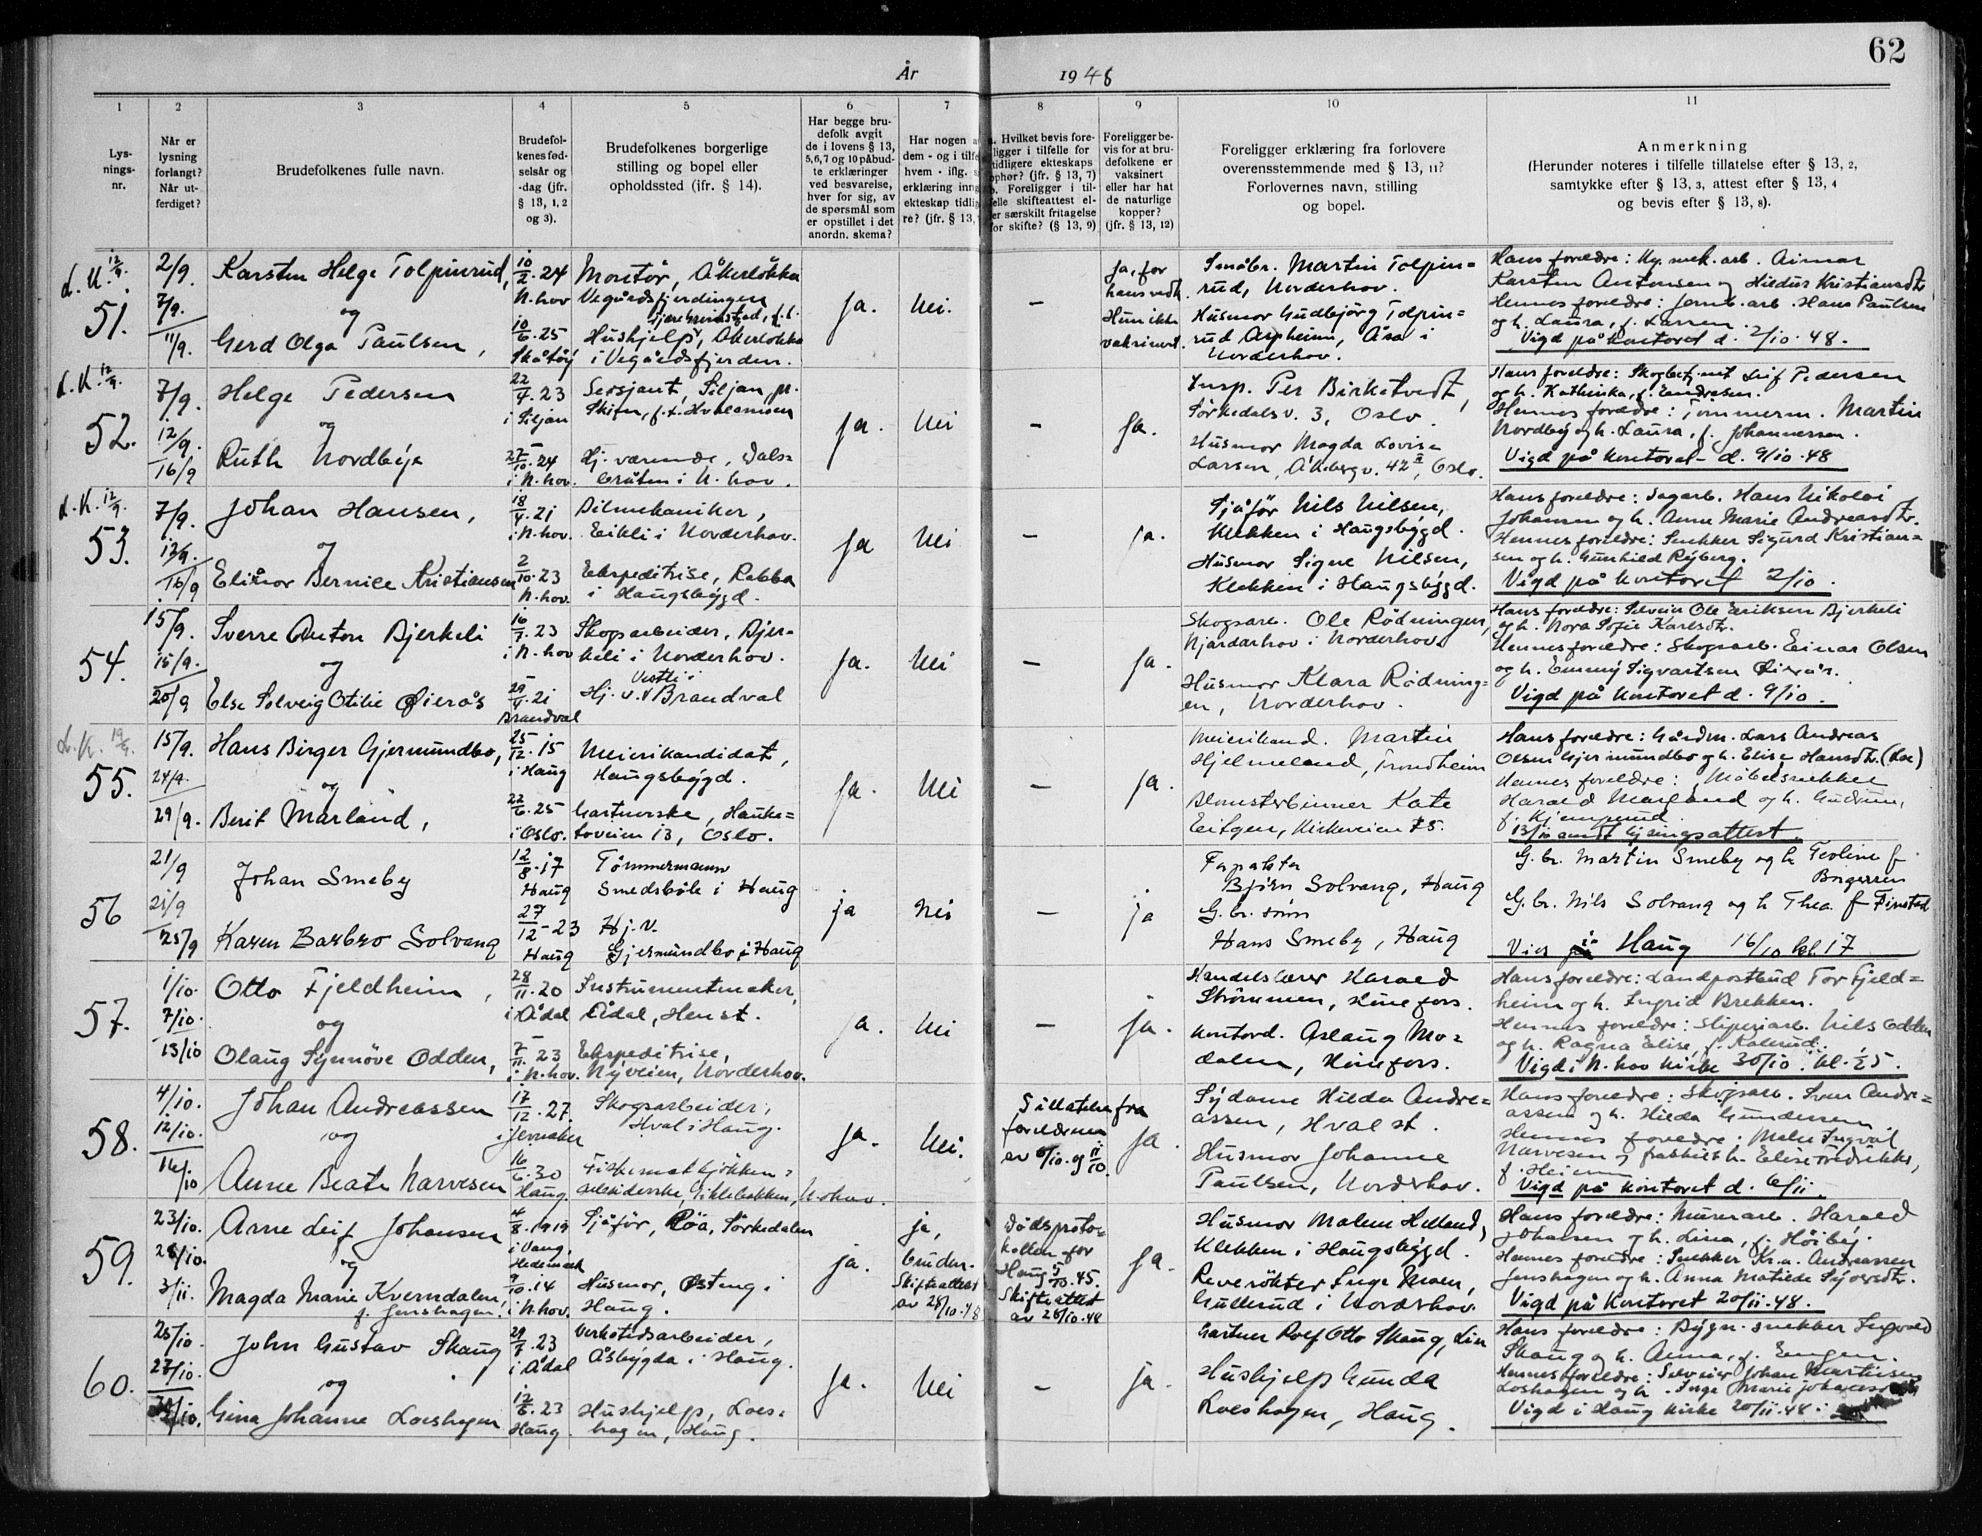 62
År 1948
1 2 3 4 5 6 7 8 9 10 11
Lys-
nings-
nr.
Når er
lysning
forlangt?
Når ut-
ferdiget?
Brudefolkenes fulle navn.
Brudefol-
kenes fød-
selsår og
-dag (jfr.
§ 13, 1, 2
og 3).
Brudefolkenes borgerlige
stilling og bopel eller
opholdssted (ifr. § 14).
Har begge bru-
defolk avgit
de i lovens § 13,
5,6,7 og 10 påbud-
te erklæringer
ved besvarelse,
hver for sig, av
de spørsmål som
er opstillet i det
anordn. skema?
Har nogen a
dem - og i tilfe
hvem - iflg. s
erklæring inng
ekteskap tidlig
re? (jfr. § 13,
a. Hvilket bevis fore-
ligger i tilfelle for
tidligere ekteskaps
ophør? (jfr. § 13, 7)
b. Foreligger i til-
felle skifteattest el-
ler særskilt fritagelse
for skifte? (§ 13, 9)
Foreligger be-
vis for at bru-
defolkene er
vaksinert
eller har hat
de naturlige
kopper?
(jfr. § 13, 12)
Foreligger erklæring fra forlovere
overensstemmende med § 13, 11?
Forlovernes navn, stilling
og bopel.
Anmerkning
(Herunder noteres i tilfelle tillatelse efter § 13, 2,
samtykke efter § 13, 3, attest efter § 13, 4
og bevis efter § 13, 8).
L.K. 12/9.
51.
2/9.
7/9.
11/9.
Karsten Helge Tolpinrud,
og
Gerd Olga Paulsen,
10/2.24
N.hov
10/6.25
Skåtøy
Montør, Åkerløkka
Vegårdsfjerdingen
Hushjelp, Åkerløkka
i Vegårdsfjerden.
Ja.
Nei.
—
Ja, for
hans vedk.
Hun ikke
vaksinert.
Småbr. Martin Tolpin=
rud, Norderhov.
Husmor Gudbjörg Tolpin=
rud Aspheim, Åsa i
Norderhov.
Hans foreldre:
Karsten Antonsen og Hildus Kristiansdtr
Hennes foreldre: Jernb.arb. Hans Paulsen
og h. Laura, f. Larsen.
Vigd på kontoret d. 2/10.48.
L.K. 12/9.
52.
7/9.
12/9.
16/9
Helge Pedersen
og
Ruth Nordbye
22/4.23
i Siljan
27/10.24
i N.hov.
Sersjant, Siljan, pr.
Skien, f.t. Hvalsmoen
Hj. værende, Dals=
bråten i N.hov.
Ja.
Nei
—
Ja.
Insp. Per Birketvedt,
Sørkedalsv. 3, Oslo.
Husmor Magda Lovise
Larsen, Åkebergv. 42 II, Oslo.
Hans foreldre: Skogbetjent Leif Pedersen
og h. Kathinka, f. Endresen.
Hennes foreldre: Tømmerm. Martin
Nordbye og h. Laura, f. Johannessen.
Vigd på kontoret d. 9/10.48
L.K. 12/9.
53.
7/9.
12/9.
16/9
Johan Hansen,
og
Elinor Bernice Kristiansen
18/4.21
i N.hov.
2/10.23
N.hov.
Bilmekaniker,
Eikli i Norderhov.
Ekspeditrise, Rabba
i Haugsbygd.
Ja
Nei
—
Ja.
Sjåfør Nils Nilsen,
Klekken i Haugsbygd.
Husmor Signe Nilsen,
Klekken i Haugsbygd.
Hans foreldre: Sagarb. Hans Nikolai
Johansen og h. Anne Marie Andreasdtr.
Hennes foreldre: Snekker Sigurd Kristian=
sen og h. Gunhild Ryberg.
Vigd på kontoret 2/10.
54.
15/9.
15/9.
20/9
Sverre Anton Bjerkeli
og
Else Solveig Otilie Øierås
16/7.23
i N.hov
29/4.21
Brandval
Skogsarbeider, Bjer=
keli i Norderhov.
Hj. v. Brandval
Ja.
Nei
—
Ja.
Skogsarb. Ole Rødningen,
Njardarhov i Norderhov.
Husmor Klara Rødning=
en, Norderhov.
Hans foreldre: Selveier Ole Eriksen Bjerkeli
og h. Nora Sofie Karlsdtr.
Hennes foreldre: Skogsarb. Einar Olsen
og h. Emmy Sigvartsen Øierås.
Vigd på kontoret d. 9/10.
L.K. 19/9.
55.
15/9.
24/9.
29/9.
Hans Birger Gjermundbo,
og
Berit Marland,
25/12.15
i Haug
22/6.25
i Oslo.
Meierikandidat,
Haugsbygd.
Gartnerske, Hauke=
toveien 13, Oslo.
Ja.
Nei
—
Ja.
Meierikand. Martin
Hjelmeland, Trondheim
Blomsterbinner Kate
Eitgen, Kirkeveien 75.
Hans foreldre: Gårdm. Lars Andreas
Olsen Gjermundbo og h. Elise Hansdtr.
Hennes foreldre: Møbelsnekker
Harald Marland og h. Gudrun,
13/10 sendt lysningsattest.
56
21/9
21/9
25/9
Johan Smeby
Karen Barbro Solvang
12/8.17
Haug
27/12-23
Haug
Tømmermann
Smedsbøle i Haug
Hj.v.
Gjermundbo i Haug
ja
Nei
—
ja
Bjørn Solvang, Haug
G.br. sønn
Hans Smeby, Haug
G.br. Martin Smeby og h Teoline f
Borgersen
G.br. Nils Solvang og h Thea f Finstad
Vies i Haug 16/10 kl. 17
57.
1/10.
7/10.
13/10
Otto Fjeldheim,
og
Olaug Synnøve Odden,
28/11.20
i Ådal
7/11.23
i N.hov.
Instrumentmaker,
Ådal, Hen st.
Ekspeditrise,
Nyveien, Norderhov.
Ja.
Nei
—
Ja.
Handelslærer Harald
Strømmen, Hønefoss.
Kontord. Aslaug Mo=
dalen, Hønefoss.
Hans foreldre: Landpostbud Tor Fjeld=
heim og h. Ingrid Brekken.
Hennes foreldre: Sliperiarb. Nils Odden
og h. Ragna Elise, f. Kolerud.
Vigd i N.hov kirke 30/10. kl. 15.
58.
4/10.
12/10.
16/10
Johan Andreassen
og
Anne Beate Narvesen
17/12.27.
i Jevnaker
16/6.30
Haug.
Skogsarbeider,
Hval i Haug.
Ja.
Nei.
Tillatelse fra
foreldrene
av 6/10. og 11/10.
Ja.
Sydame Hilda Andre=
assen, Hval st.
Husmor Johanne
Paulsen, Norderhov.
Hans foreldre: Skogsarb. Sven Andre=
assen og h. Hilda Gundersen
Hennes foreldre: Maler Ingval
Narvesen og fraskilt h. Elise Fredrikke,
f. Heiem
Vigd på kontoret d. 6/11.
59.
23/10.
28/10.
3/11.
Arne Leif Johansen
og
Magda Marie Kverndalen,
f. Jenshagen.
4/8.1919
i Vang,
Hedemark
9/10.14
i N.hov.
Sjåfør, Røa, Sørkedalen
Husmor, Østeng i
Haug.
ja.
ja,
bruden.
Skifteattest
av 28/10.48
Dødsproto=
kollen for
Haug 5/10.45.
Skifteattest
av 28/10.48
Ja.
Husmor Malen Helland,
Klekken i Haugsbygd.
Reverøkter Inge Moen,
Gullerud i Norderhov.
Hans foreldre: Murerarb. Harald
Johansen og h. Lina, f. Høiby.
Hennes foreldre: Snekker Kr.a. Andreassen
Jenshagen og h. Anna Matilde Syversdtr.
Vigd på kontoret 20/11.48.
60.
25/10.
27/10.
John Gustav Skaug
og
Gina Johanne Loeshagen
29/7.23
i Ådal
12/6.23
Haug.
Verkstedsarbeider,
Åsbygda i Haug.
Hushjelp, Loes=
hagen, Haug.
Ja.
Nei
—
ja.
Gartner Rolf Otto Skaug, Lier
Hushjelp Gunda
Loeshagen, Haug.
Hans foreldre: Bygn.snekker Ingvald
Skaug og h. Anna, f. Engen.
Hennes foreldre: Selveier Johan Martinsen
Loeshagen og h. Inga Marie
Vigd i Haug kirke 20/11.48.